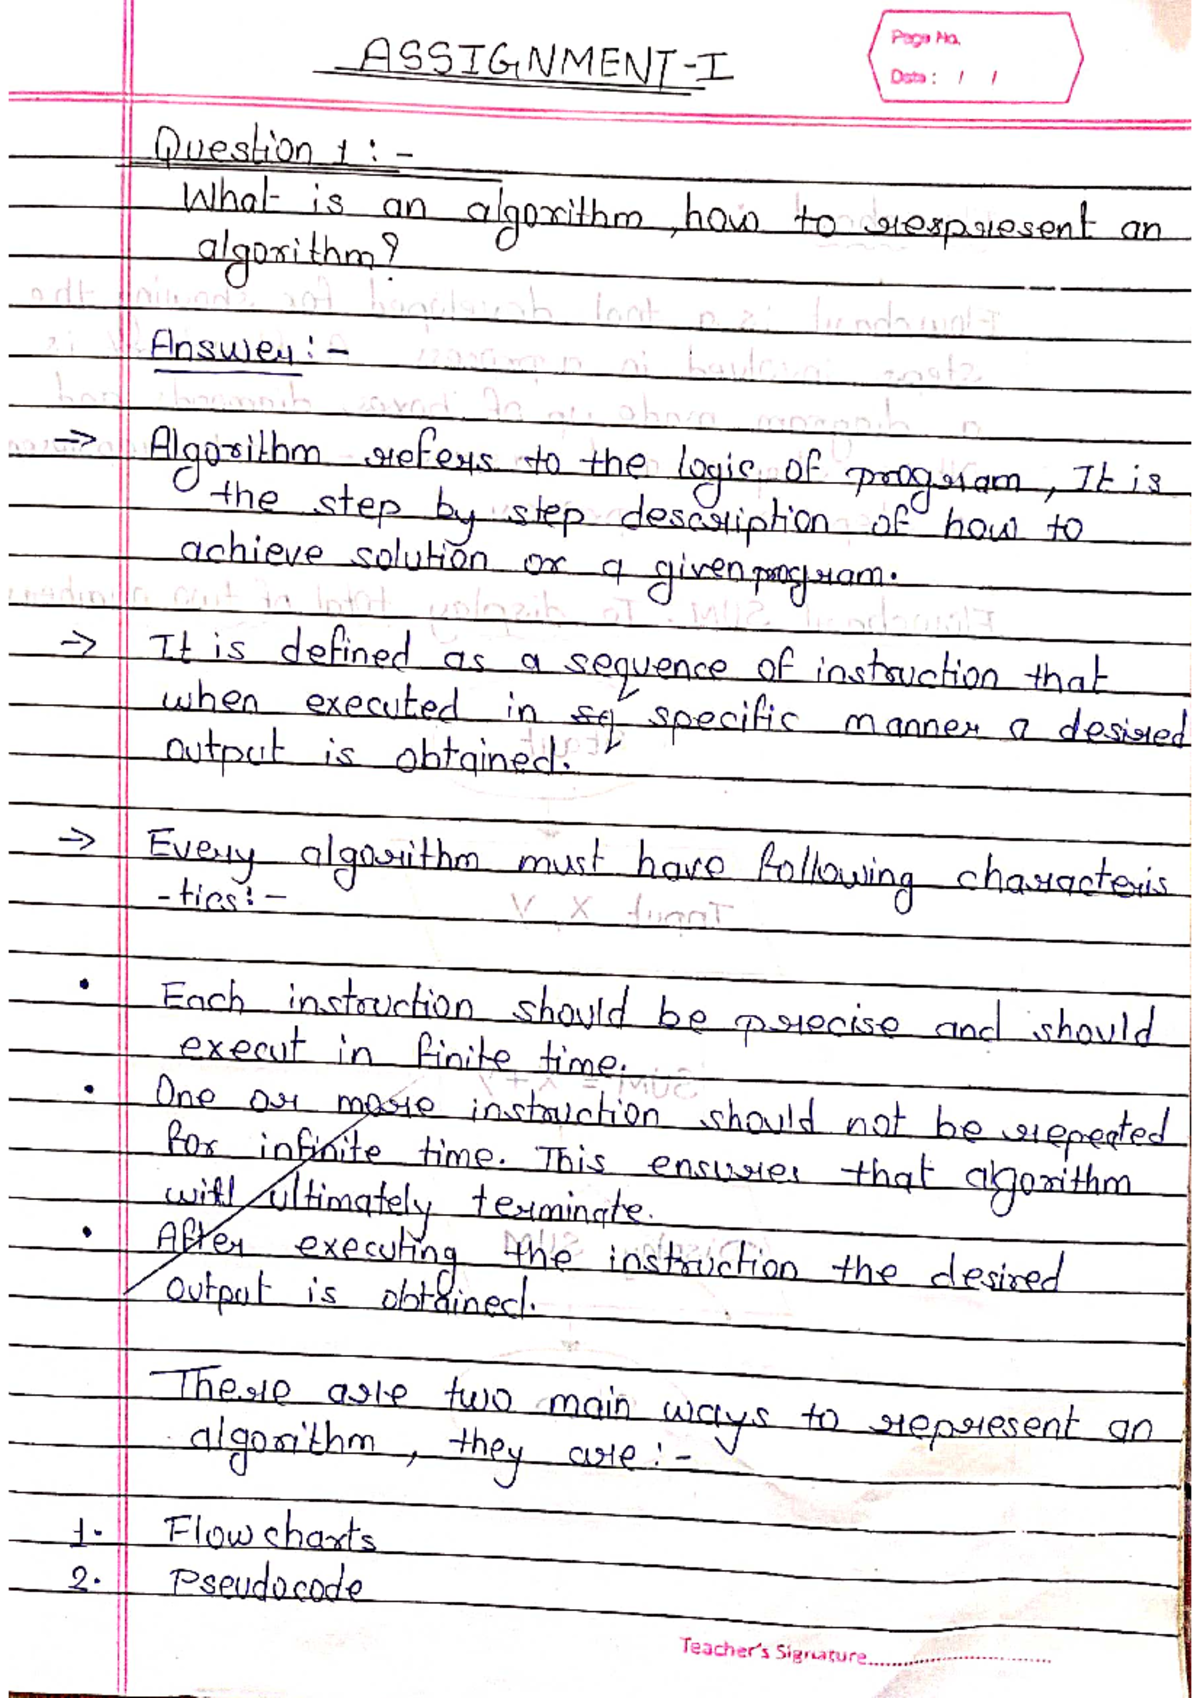 Page No.
Date : / /
ASSIGNMENT-I
Question 1 : -
What is an algorithm, how to respresent an
algorithm?
Answer : -
→ Algorithm refers to the logic of program, It is
the step by step description of how to
achieve solution or a given program.
→ It is defined as a sequence of instruction that
when executed in sq specific manner a desired
output is obtained.
→ Every algorithm must have following characteris
-tics : -
• Each instruction should be precise and should
execut in finite time.
• One or more instruction should not be repeated
for infinite time. This ensures that algorithm
will ultimately terminate.
• After executing the instruction the desired
output is obtained.
There are two main ways to represent an
algorithm, they are : -
1. Flowcharts
2. Pseudocode
Teacher's Signature